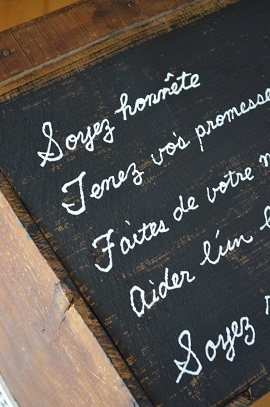 Soyez honnête
Tenez vos promesse
Faites de votre
Aider l'un
Soyez